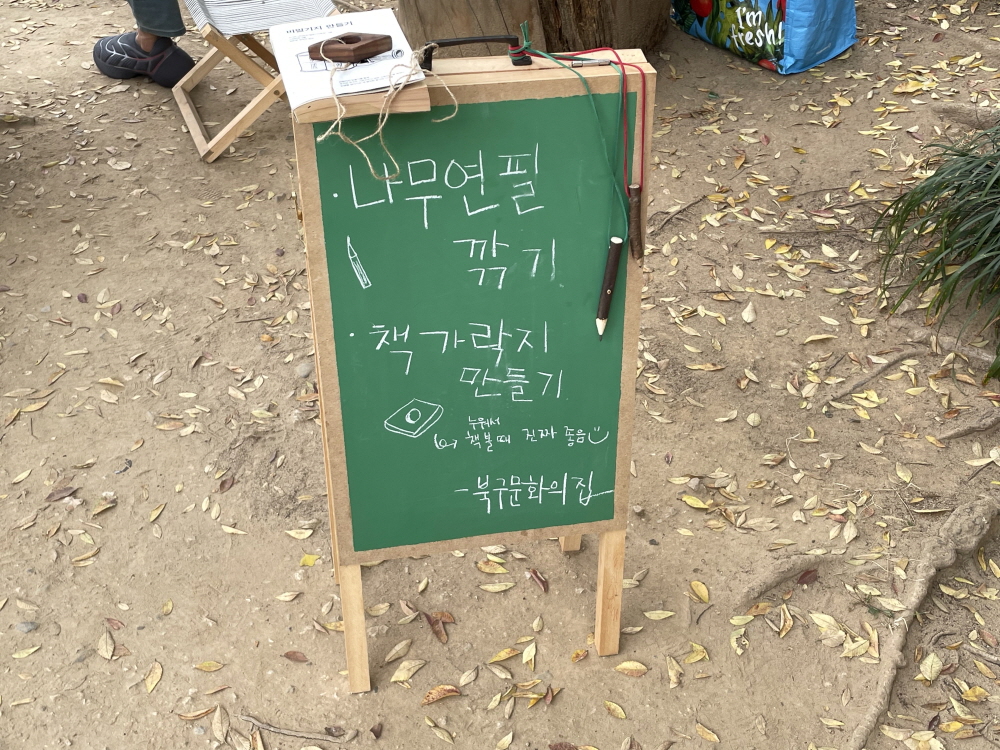 · 나무연필
깎기
· 책가락지
만들기
누워서
책볼때 진짜 좋음
- 북구문화의집
I'm
fresh!